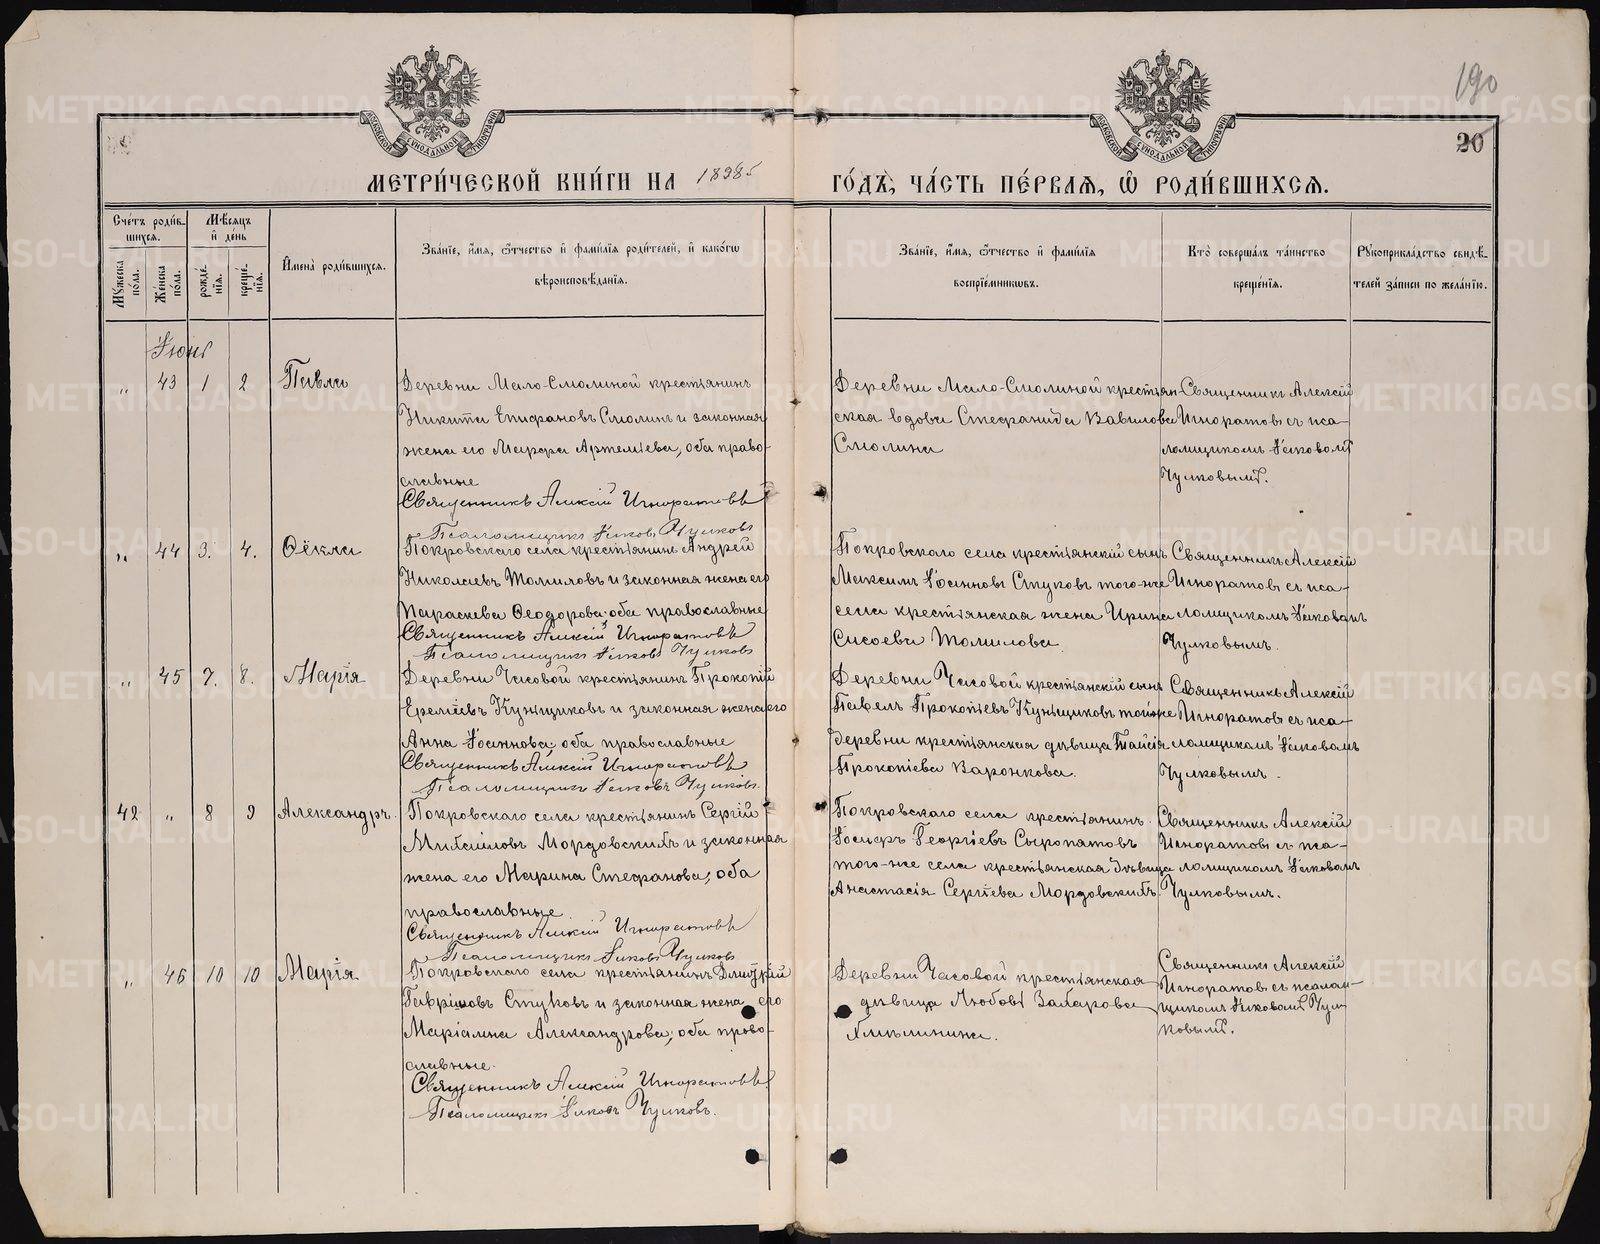 190
20
МОСКОВСКОЙ СѴНОДАЛЬНОЙ ТИПОГРАФІИ
МОСКОВСКОЙ СѴНОДАЛЬНОЙ ТИПОГРАФІИ
МЕТРИ́ЧЕСКОЙ КНИ́ГИ НА 1898 5 ГО́ДЪ, ЧА́СТЬ ПЕ́РВАѦ, Ѡ҆ РОДИ́ВШИХСѦ.
Сче́тъ роди́в-
шихся.
Мꙋ́жеска по́ла.
Же́нска по́ла.
Мѣ́сяцъ
и҆ де́нь
рожде́нїя.
креще́нїя.
И҆мена̀ роди́вшихся.
Зва́нїе, и҆́мя, ѻ҆́тчество и҆ фами́лїя роди́телей, и҆ како́гѡ
вѣроисповѣ́данїя.
Зва́нїе, и҆́мя, ѻ҆́тчество и҆ фами́лїя
воспрїе́мникѡвъ.
Кто̀ соверша́лъ та́инство
креще́нїя.
Рꙋкоприкла́дство свидѣ́-
телей за́писи по жела́нїю.
Іюнь
„ 43 1 2 Павла
Деревни Мало-Смолиной крестьянинъ
Никита Епифановъ Смолинъ и законная
жена его Марфа Артемьева, оба право-
славные
Священникъ Алексій Игноратовъ
Псаломщикъ Іаковъ Чулковъ
Деревни Мало-Смолиной крестьян-
ская вдова Стефанида Вавилова
Смолина
Священникъ Алексій
Игноратовъ съ пса-
ломщикомъ Іаковомъ
Чулковымъ.
„ 44 3. 4. Ѳёкла
Покровскаго села крестьянинъ Андрей
Николаевъ Томиловъ и законная жена его
Параскева Ѳеодорова оба православные
Священникъ Алексій Игноратовъ
Псаломщикъ Іаковъ Чулковъ
Покровскаго села крестьянскій сынъ
Максимъ Іоанновъ Стуковъ того-же
села крестьянская жена Ирина
Сисоева Томилова
Священникъ Алексій
Игноратовъ съ пса-
ломщикомъ Іаковомъ
Чулковымъ.
„ 45 7. 8. Марія
Деревни Часовой крестьянинъ Прокопій
Еремѣевъ Кунщиковъ и законная жена его
Анна Іоаннова, оба православные
Священникъ Алексій Игноратовъ
Псаломщикъ Іаковъ Чулковъ.
Деревни Часовой крестьянскій сынъ
Павелъ Прокопіевъ Кунщиковъ той же
деревни крестьянская дѣвица Таисія
Прокопіева Воронкова.
Священникъ Алексій
Игноратовъ съ пса-
ломщикомъ Іаковомъ
Чулковымъ.
42 „ 8 9 Александръ.
Покровскаго села крестьянинъ Сергій
Михаиловъ Мордовскихъ и законная
жена его Марина Стефанова, оба
православные.
Священникъ Алексій Игноратовъ
Псаломщикъ Іаковъ Чулковъ
Покровскаго села крестьянинъ
Іосифъ Георгіевъ Сыропятовъ
того-же села крестьянская дѣвица
Анастасія Сергѣева Мордовскихъ.
Священникъ Алексій
Игноратовъ съ пса-
ломщикомъ Іаковомъ
Чулковымъ.
„ 46 10 10 Марія.
Покровскаго села крестьянинъ Димитрій
Гавриловъ Стуковъ и законная жена его
Маріамна Александрова, оба право-
славные.
Священникъ Алексій Игноратовъ
Псаломщикъ Іаковъ Чулковъ.
Деревни Часовой крестьянская
дѣвица Любовь Захарова
Хмѣлинина.
Священникъ Алексій
Игноратовъ съ псалом-
щикомъ Іаковомъ Чул-
ковымъ.
METRIKI.GASO-URAL.RU